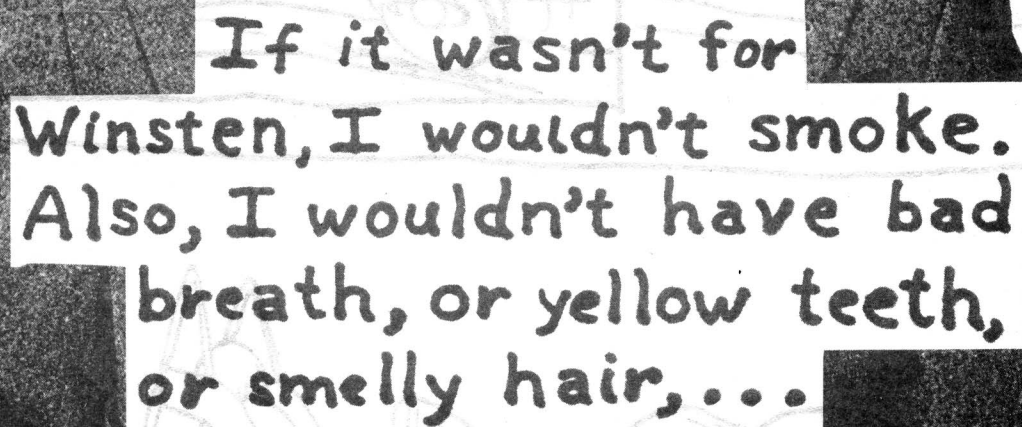 If it wasn't for
Winsten, I wouldn't smoke.
Also, I wouldn't have bad
breath, or yellow teeth,
or smelly hair,...